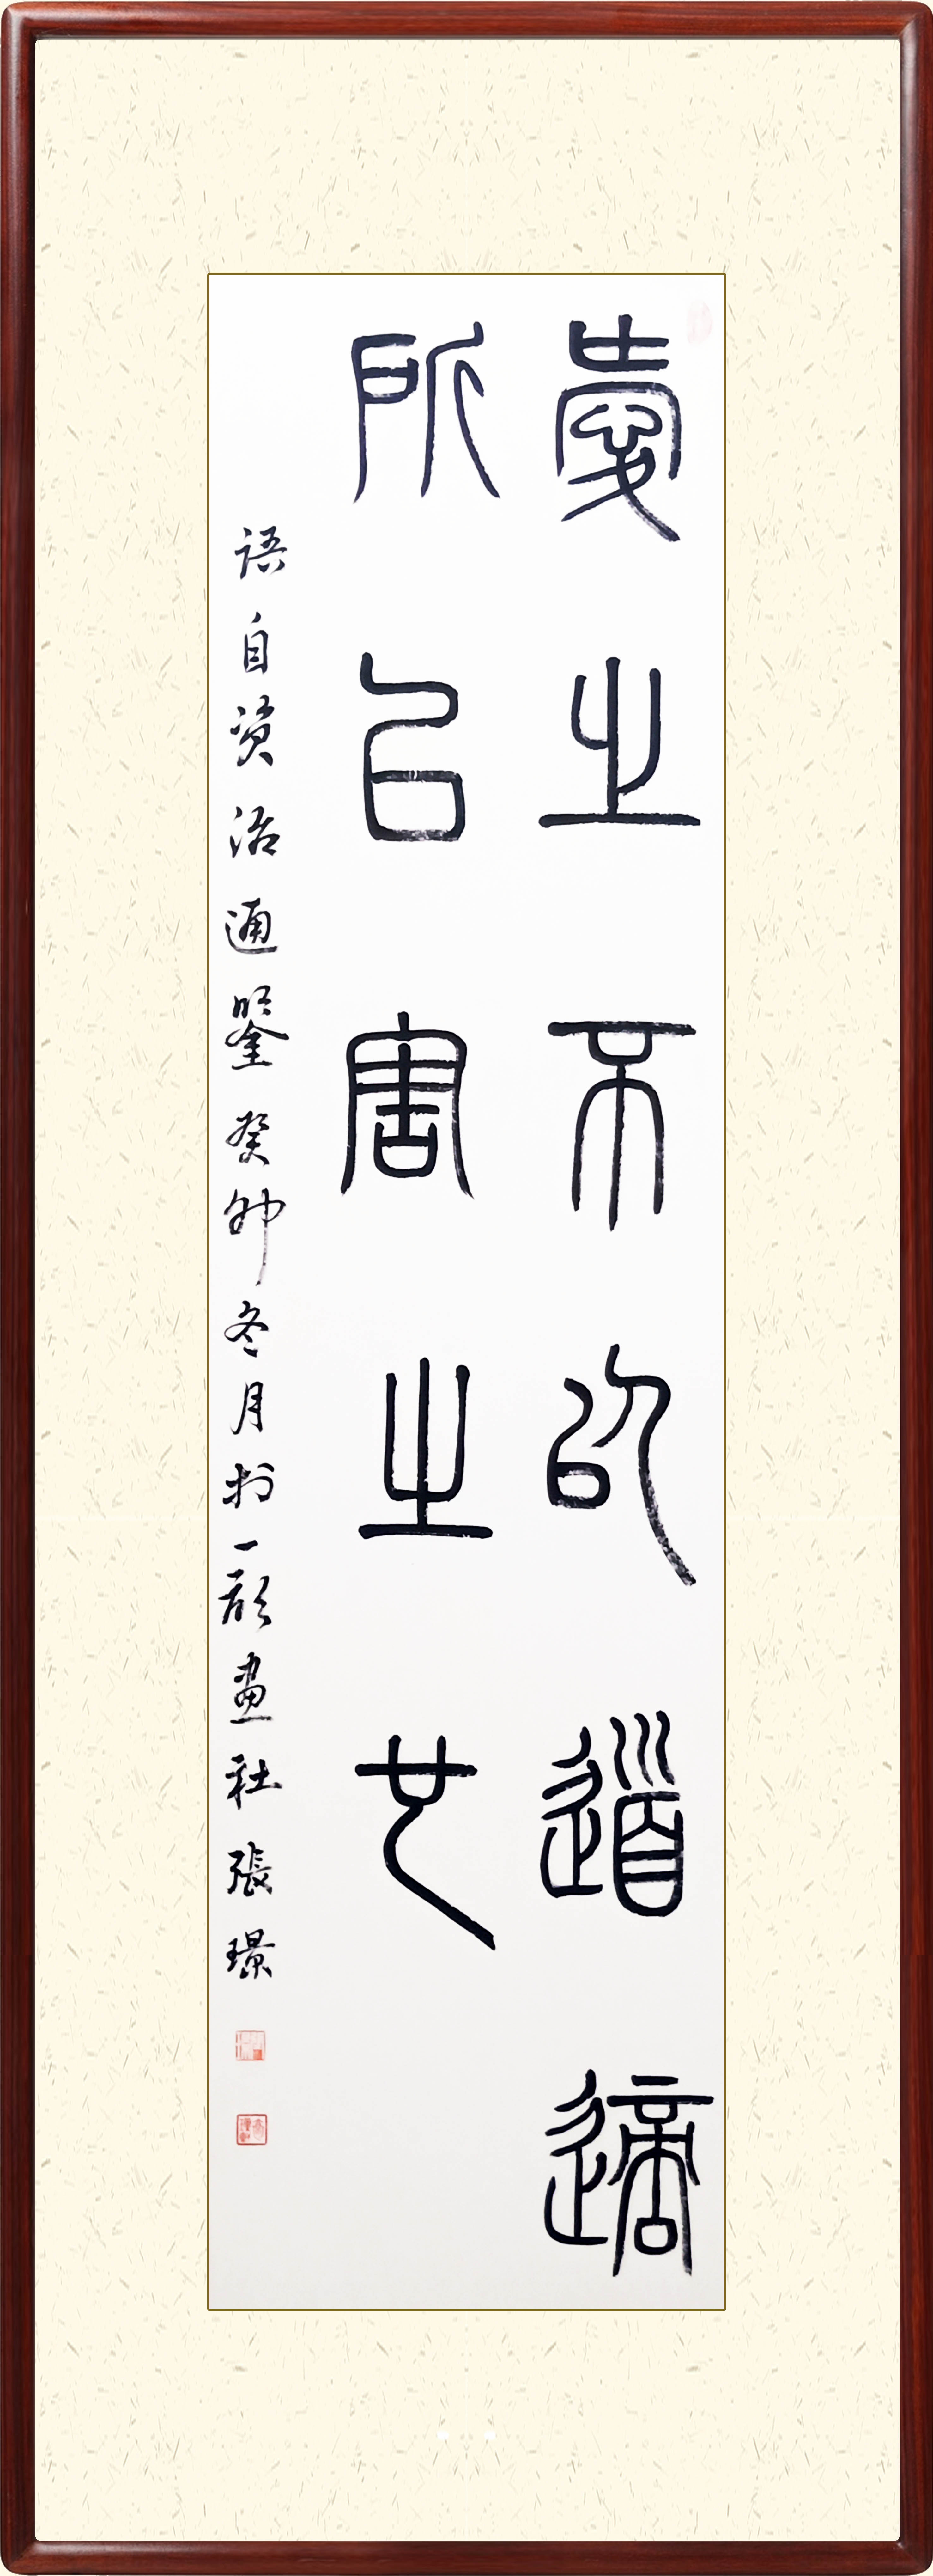 愛之不以道適
所以害之也
語自資治通鑒癸卯冬月於一顏畫社張璟